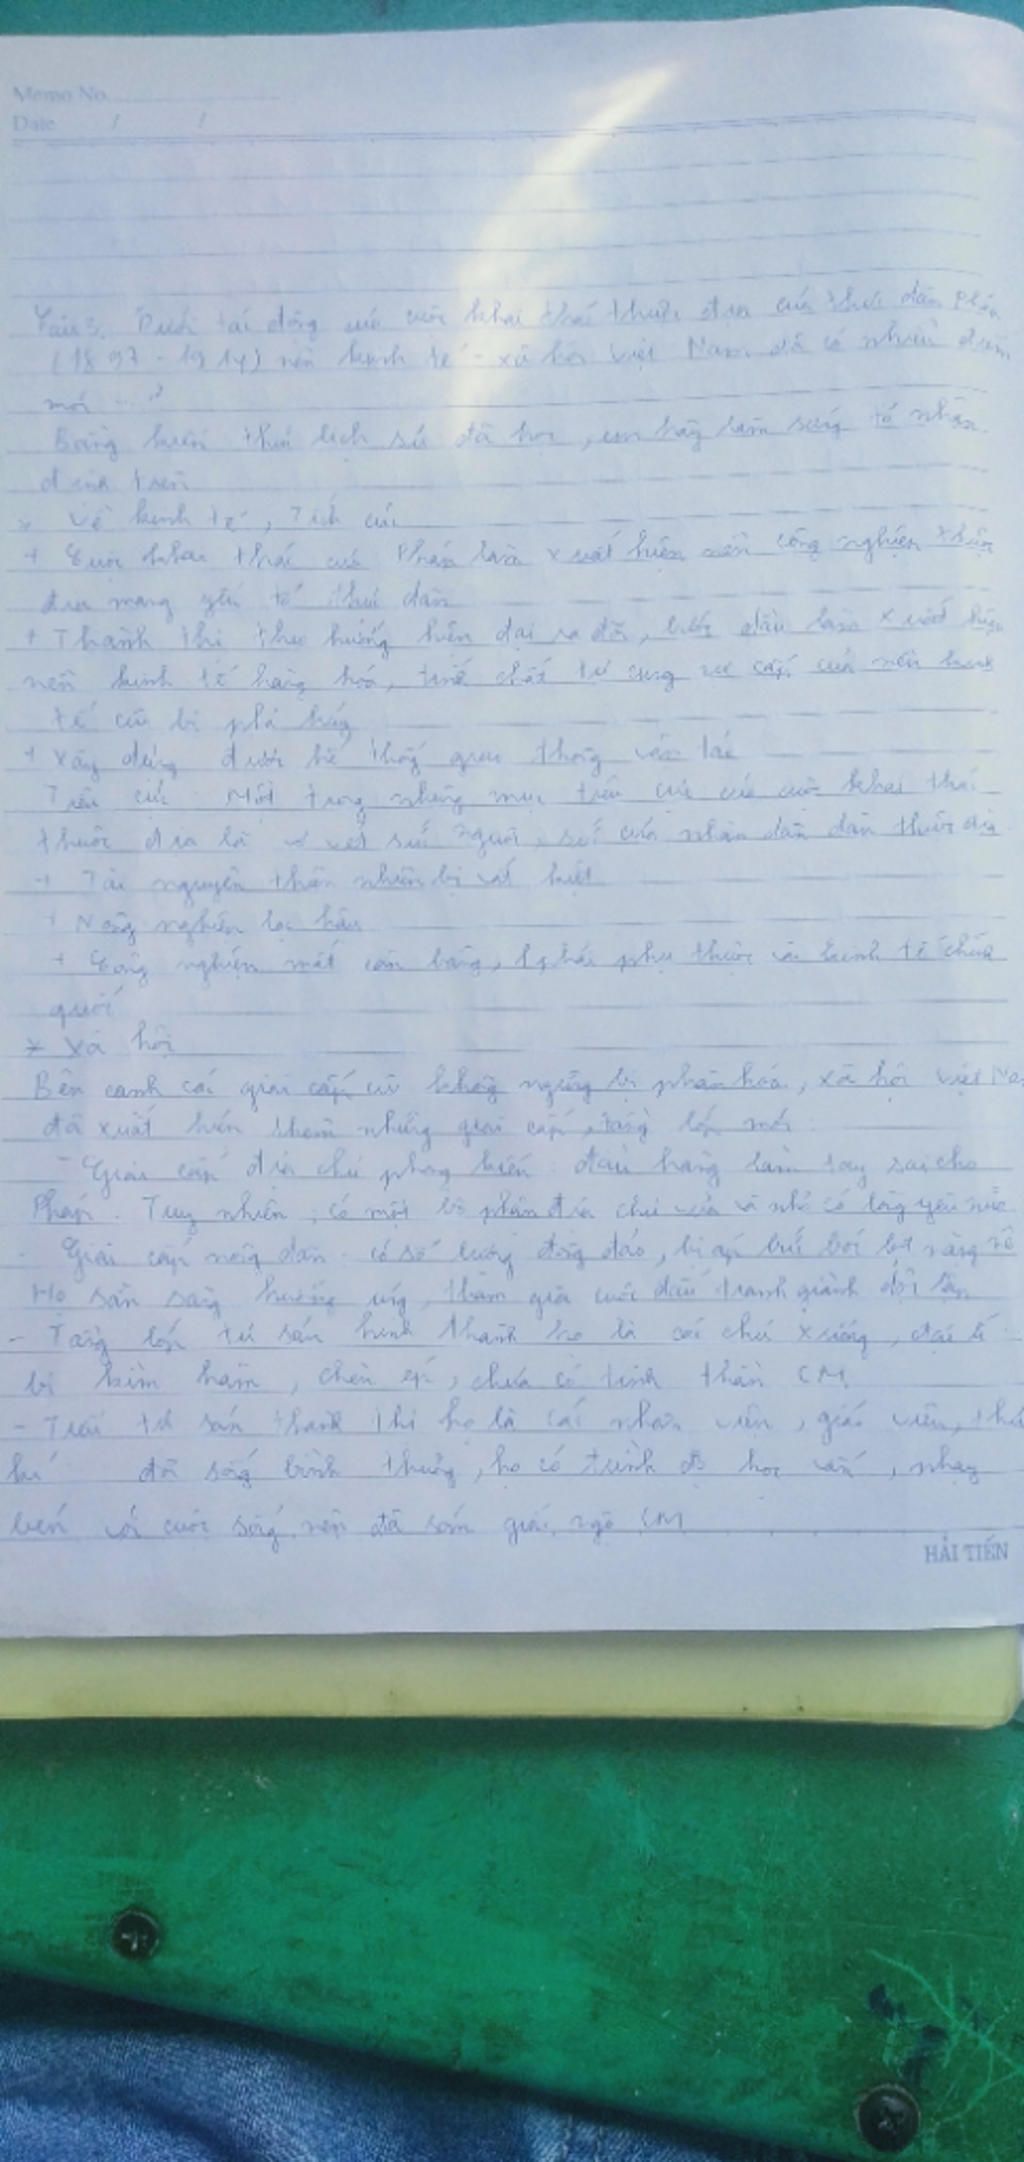 Memo No.
Date / /
Câu 3. Dưới tác động của cuộc khai thác thuộc địa của thực dân Pháp
(1897 - 1914) nền kinh tế - xã hội Việt Nam đã có nhiều điểm
mới ...?
Bằng kiến thức lịch sử đã học, em hãy làm sáng tỏ nhận
định trên
* Về kinh tế, Tích cực
+ Cuộc khai thác của Pháp làm xuất hiện nền công nghiệp thuộc
địa mang yếu tố thực dân
+ Thành thị theo hướng hiện đại ra đời, bước đầu làm xuất hiện
nền kinh tế hàng hóa, tính chất tự cung tự cấp của nền kinh
tế cũ bị phá hủy
+ Xây dựng được hệ thống giao thông vận tải
Tiêu cực Một trong những mục tiêu của của cuộc khai thác
thuộc địa là vơ vét sức người, sức của nhân dân dân thuộc địa
+ Tài nguyên thiên nhiên bị vắt kiệt
+ Nông nghiệp lạc hậu
+ Công nghiệp mất cân bằng, phải phụ thuộc và kinh tế chính
quốc
* Xã hội
Bên cạnh các giai cấp cũ không ngừng bị phân hóa, xã hội Việt Na
đã xuất hiện thêm những giai cấp, tầng lớp mới:
- Giai cấp địa chủ phong kiến: đầu hàng làm tay sai cho
Pháp. Tuy nhiên, có một bộ phận địa chủ vừa và nhỏ có lòng yêu nước
- Giai cấp nông dân: có số lượng đông đảo, bị áp bức bóc lột nặng nề
Họ sẵn sàng hưởng ứng, tham gia cuộc đấu tranh giành độc lập
- Tầng lớp tư sản hình thành họ là các chủ xưởng, đại lí
bị kìm hãm, chèn ép, chưa có tinh thần CM
- Tiểu tư sản thành thị họ là các nhân viên, giáo viên, thư
kí đời sống bình thường, họ có trình độ học vấn, nhạy
bén với cuộc sống nên đã sớm giác ngộ CM
HẢI TIẾN